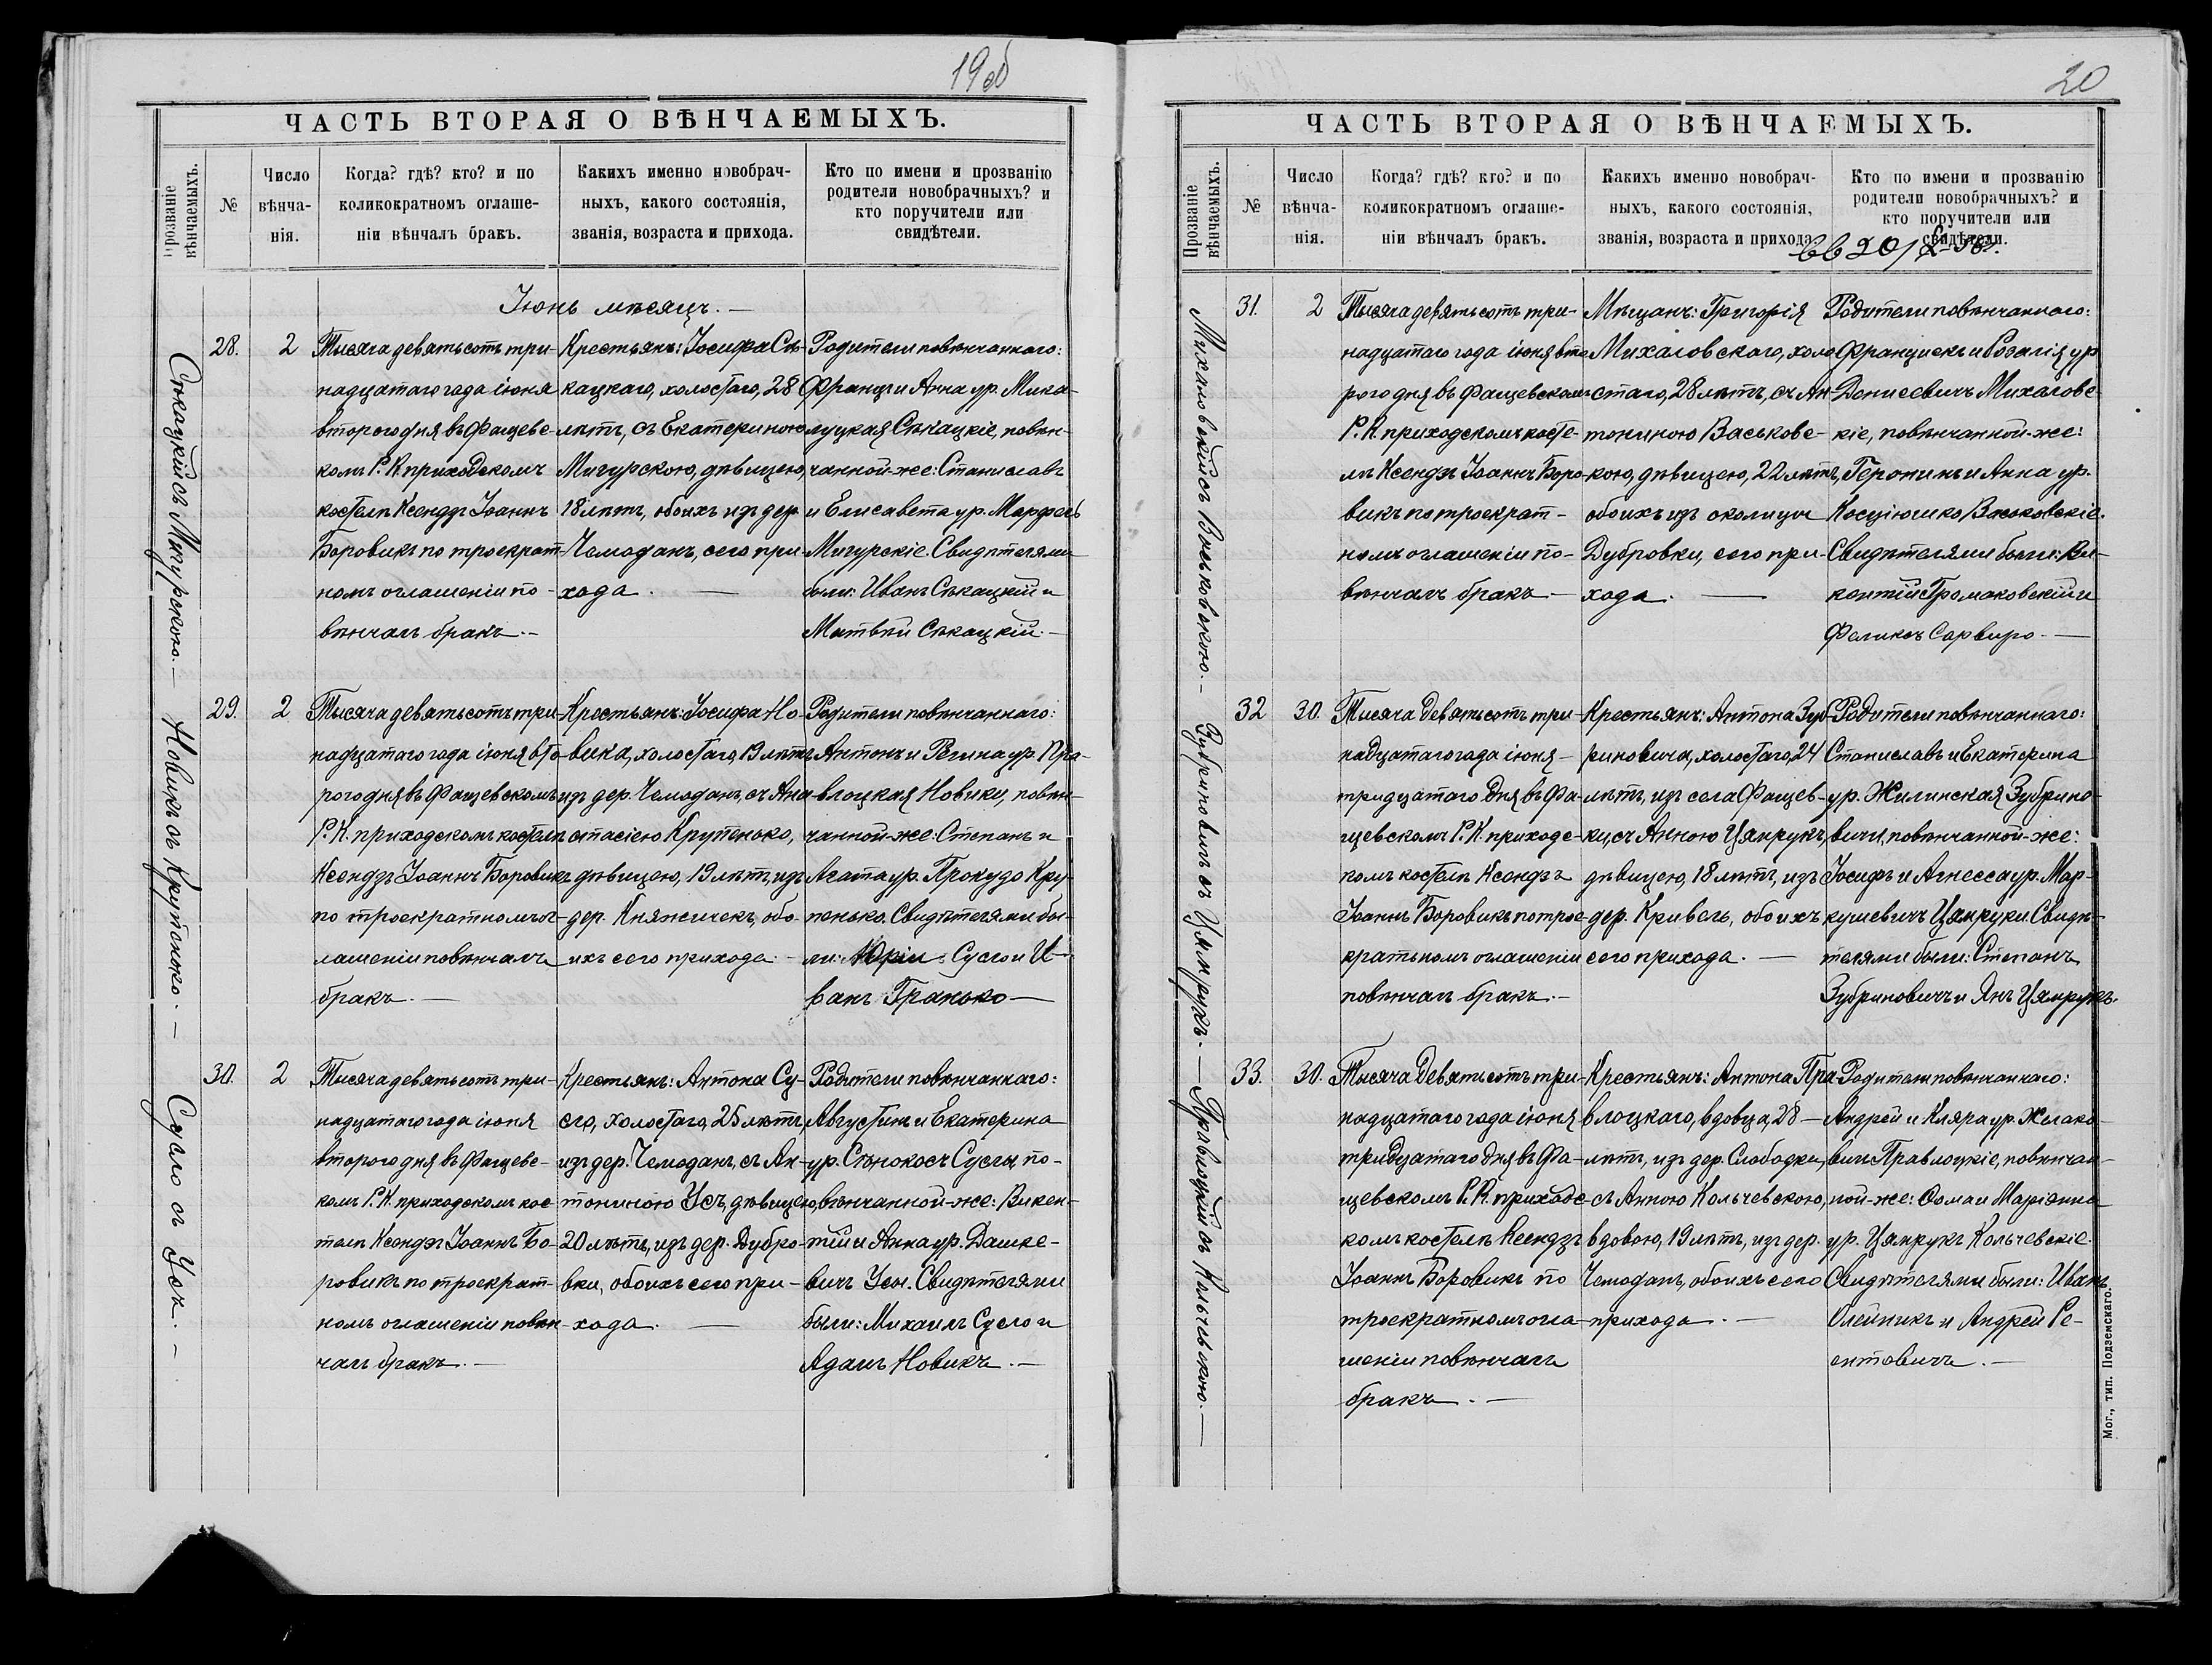 19об
ЧАСТЬ ВТОРАЯ О ВѢНЧАЕМЫХЪ.
Прозваніе вѣнчаемыхъ.
№
Число вѣнча-нія.
Когда? гдѣ? кто? и по
коликократномъ оглаше-
ніи вѣнчалъ бракъ.
Какихъ именно новобрач-
ныхъ, какого состоянія,
званія, возраста и прихода.
Кто по имени и прозванію
родители новобрачныхъ? и
кто поручители или
свидѣтели.
Іюнь мѣсяцъ.—
Сѣкацкій съ Мигурскою.—
28.
2
Тысяча девятьсотъ три-
надцатаго года іюня
второго дня въ Фащевс-
комъ Р. К. приходскомъ
костелѣ Ксендзъ Іоаннъ
Боровикъ по троекрат-
номъ оглашеніи по-
вѣнчалъ бракъ.—
Крестьянъ: Іосифа Сѣ-
кацкаго, холостаго, 28
лѣтъ, съ Екатериною
Мигурскою, дѣвицею,
18 лѣтъ, обоихъ изъ дер.
Чемоданъ, сего при-
хода.—
Родители повѣнчаннаго:
Францъ и Анна ур. Мика-
луцкая Сѣкацкіе, повѣн-
чанной-же: Станиславъ
и Елисавета ур.
Мигурскіе. Свидѣтелями
были: Иванъ Сѣкацкій и
Матвѣй Сѣкацкій.—
Новикъ съ Крупенько.—
29.
2
Тысяча девятьсотъ три-
надцатаго года іюня вто-
рого дня въ Фащевскомъ
Р. К. приходскомъ костелѣ
Ксендзъ Іоаннъ Боровикъ
по троекратномъ ог-
лашеніи повѣнчалъ
бракъ.—
Крестьянъ: Іосифа Но-
вика, холостаго, 19 лѣтъ
изъ дер. Чемоданъ, съ Ана-
стасіею Крупенько,
дѣвицею, 19 лѣтъ, изъ
дер. Княжичекъ, обо-
ихъ сего прихода.—
Родители повѣнчаннаго:
Антонъ и Регина ур. Пра-
влоцкая Новики, повѣн-
чанной-же: Степанъ и
Агата ур. Прокудо Кру-
пенько. Свидѣтелями бы-
ли: Юрій Сусло и И-
ванъ Гранько—
Сусло съ Усъ.—
30.
2
Тысяча девятьсотъ три-
надцатаго года іюня
второго дня въ Фащевс-
комъ Р. К. приходскомъ кос-
телѣ Ксендзъ Іоаннъ Бо-
ровикъ по троекрат-
номъ оглашеніи повѣн-
чалъ бракъ.—
Крестьянъ: Антона Су-
сло, холостаго, 25 лѣтъ,
изъ дер. Чемоданъ, съ Ан-
тониною Усъ, дѣвицею,
20 лѣтъ, изъ дер. Дубро-
вки, обоихъ сего при-
хода.—
Родители повѣнчаннаго:
Августинъ и Екатерина
ур. Сѣнокосъ Суслы, по-
вѣнчанной-же: Викен-
тій и Анна ур. Дашке-
вичъ Усы. Свидѣтелями
были: Михаилъ Сусло и
Адамъ Новикъ.—
20
ЧАСТЬ ВТОРАЯ О ВѢНЧАЕМЫХЪ.
Прозваніе вѣнчаемыхъ.
№
Число вѣнча-нія.
Когда? гдѣ? кто? и по
коликократномъ оглаше-
ніи вѣнчалъ бракъ.
Какихъ именно новобрач-
ныхъ, какого состоянія,
званія, возраста и прихода
Кто по имени и прозванію
родители новобрачныхъ? и
кто поручители или
свидѣтели.
Михаловскій съ Васьковскою.—
31.
2
Тысяча девятьсотъ три-
надцатаго года іюня вто-
рого дня въ Фащевскомъ
Р. К. приходскомъ косте-
лѣ Ксендзъ Іоаннъ Боро-
викъ по троекрат-
номъ оглашеніи по-
вѣнчалъ бракъ.—
Мѣщанъ: Григорія
Михаловскаго, холо-
стаго, 28 лѣтъ, съ Ан-
тониною Васьковс-
кою, дѣвицею, 22 лѣтъ,
обоихъ изъ околицы
Дубровки, сего при-
хода.—
Родители повѣнчаннаго:
Францискъ и Розалія ур.
Денисевичъ Михаловс-
кіе, повѣнчанной-же:
Геронимъ и Анна ур.
Косцюшко Васьковскіе.
Свидѣтелями были: Ви-
кентій Громаковскій и
Феликсъ Сарвиро.—
Зубриновичъ съ Цямрукъ.—
32
30.
Тысяча девятьсотъ три-
надцатаго года іюня
тридцатаго дня въ Фа-
щевскомъ Р. К. приходс-
комъ костелѣ Ксендзъ
Іоаннъ Боровикъ по трое-
кратномъ оглашеніи
повѣнчалъ бракъ.—
Крестьянъ: Антона Зуб-
риновича, холостаго, 24
лѣтъ, изъ села Фащев-
ки, съ Анною Цямрукъ,
дѣвицею, 18 лѣтъ, изъ
дер. Кривель, обоихъ
сего прихода.—
Родители повѣнчаннаго:
Станиславъ и Екатерина
ур. Жилинская Зубрино-
вичи, повѣнчанной-же:
Іосифъ и Агнесса ур. Мар-
кушевичъ Цямруки. Свидѣ-
телями были: Степанъ
Зубриновичъ и Янъ Цямрукъ.
Правлоцкій съ Кольчевскою.—
33.
30.
Тысяча девятьсотъ три-
надцатаго года іюня
тридцатаго дня въ Фа-
щевскомъ Р. К. приходс-
комъ костелѣ Ксендзъ
Іоаннъ Боровикъ по
троекратномъ огла-
шеніи повѣнчалъ
бракъ.—
Крестьянъ: Антона Пра-
влоцкаго, вдовца, 28
лѣтъ, изъ дер. Слободки,
съ Анною Кольчевскою,
вдовою, 19 лѣтъ, изъ дер.
Чемоданъ, обоихъ сего
прихода.—
Родители повѣнчаннаго:
Андрей и Кляра ур. Жлако-
вичъ Правлоцкіе, повѣнчан-
ной-же: Ѳома и Маріанна
ур. Цямрукъ Кольчевскіе.
Свидѣтелями были: Иванъ
Олейникъ и Андрей Ре-
ентовичъ.—
Мог., тип. Подземскаго.